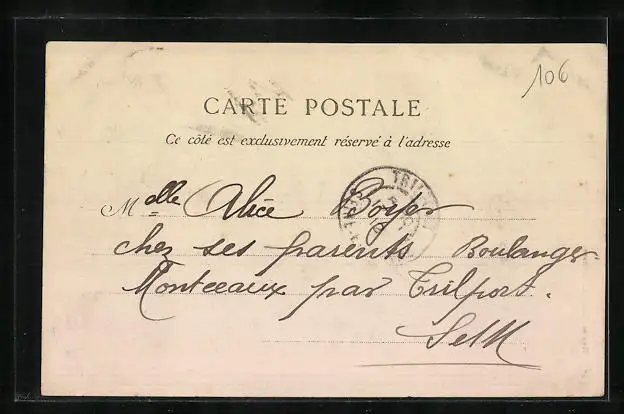 106
CARTE POSTALE
Ce côté est exclusivement réservé à l'adresse
Melle Alice
chez ses parents Boulanger
Montceaux par Trilport.
S et M